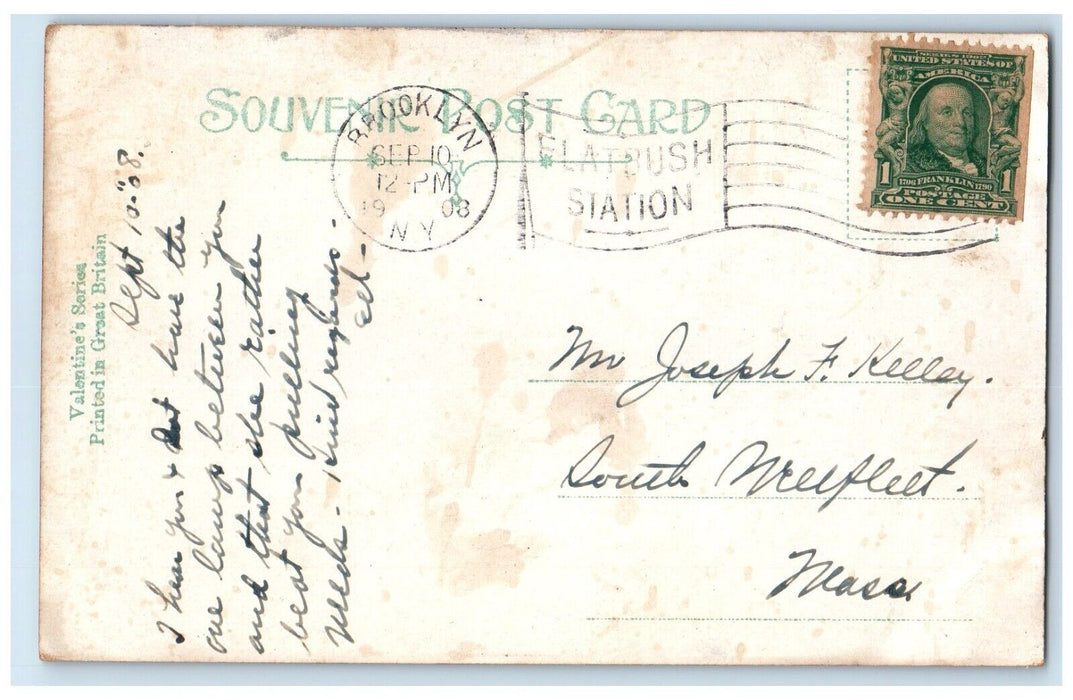 SOUVENIR POST CARD
BROOKLYN
SEP 10
12-PM
19 08
N.Y.
FLATBUSH
STATION
SERIES 1902
UNITED STATES OF
AMERICA
1 1
1706 FRANKLIN 1790
POSTAGE
ONE CENT
Valentine's Series
Printed in Great Britain
Sept 10-"08.
I hear you & Dot have the
one lung between you
and that she rather
beat you pulling
weeds. Kind regards.
Mr Joseph F. Kelley.
South Wellfleet.
Mass.